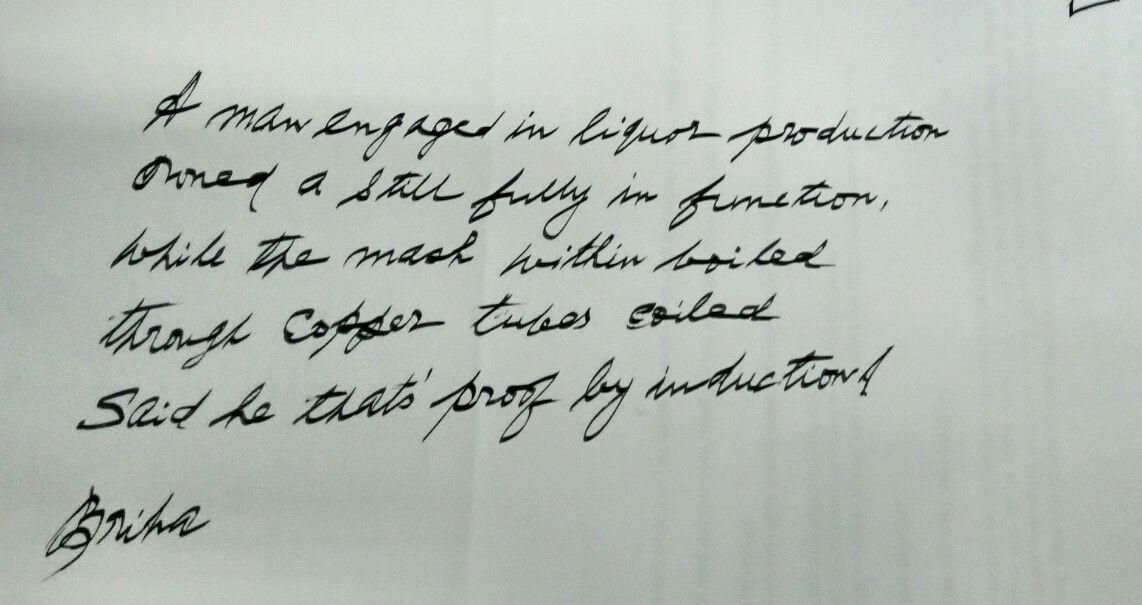 A man engaged in liquor production
owned a still fully in function,
while the mash within boiled
through copper tubes coiled
Said he that's proof by induction!